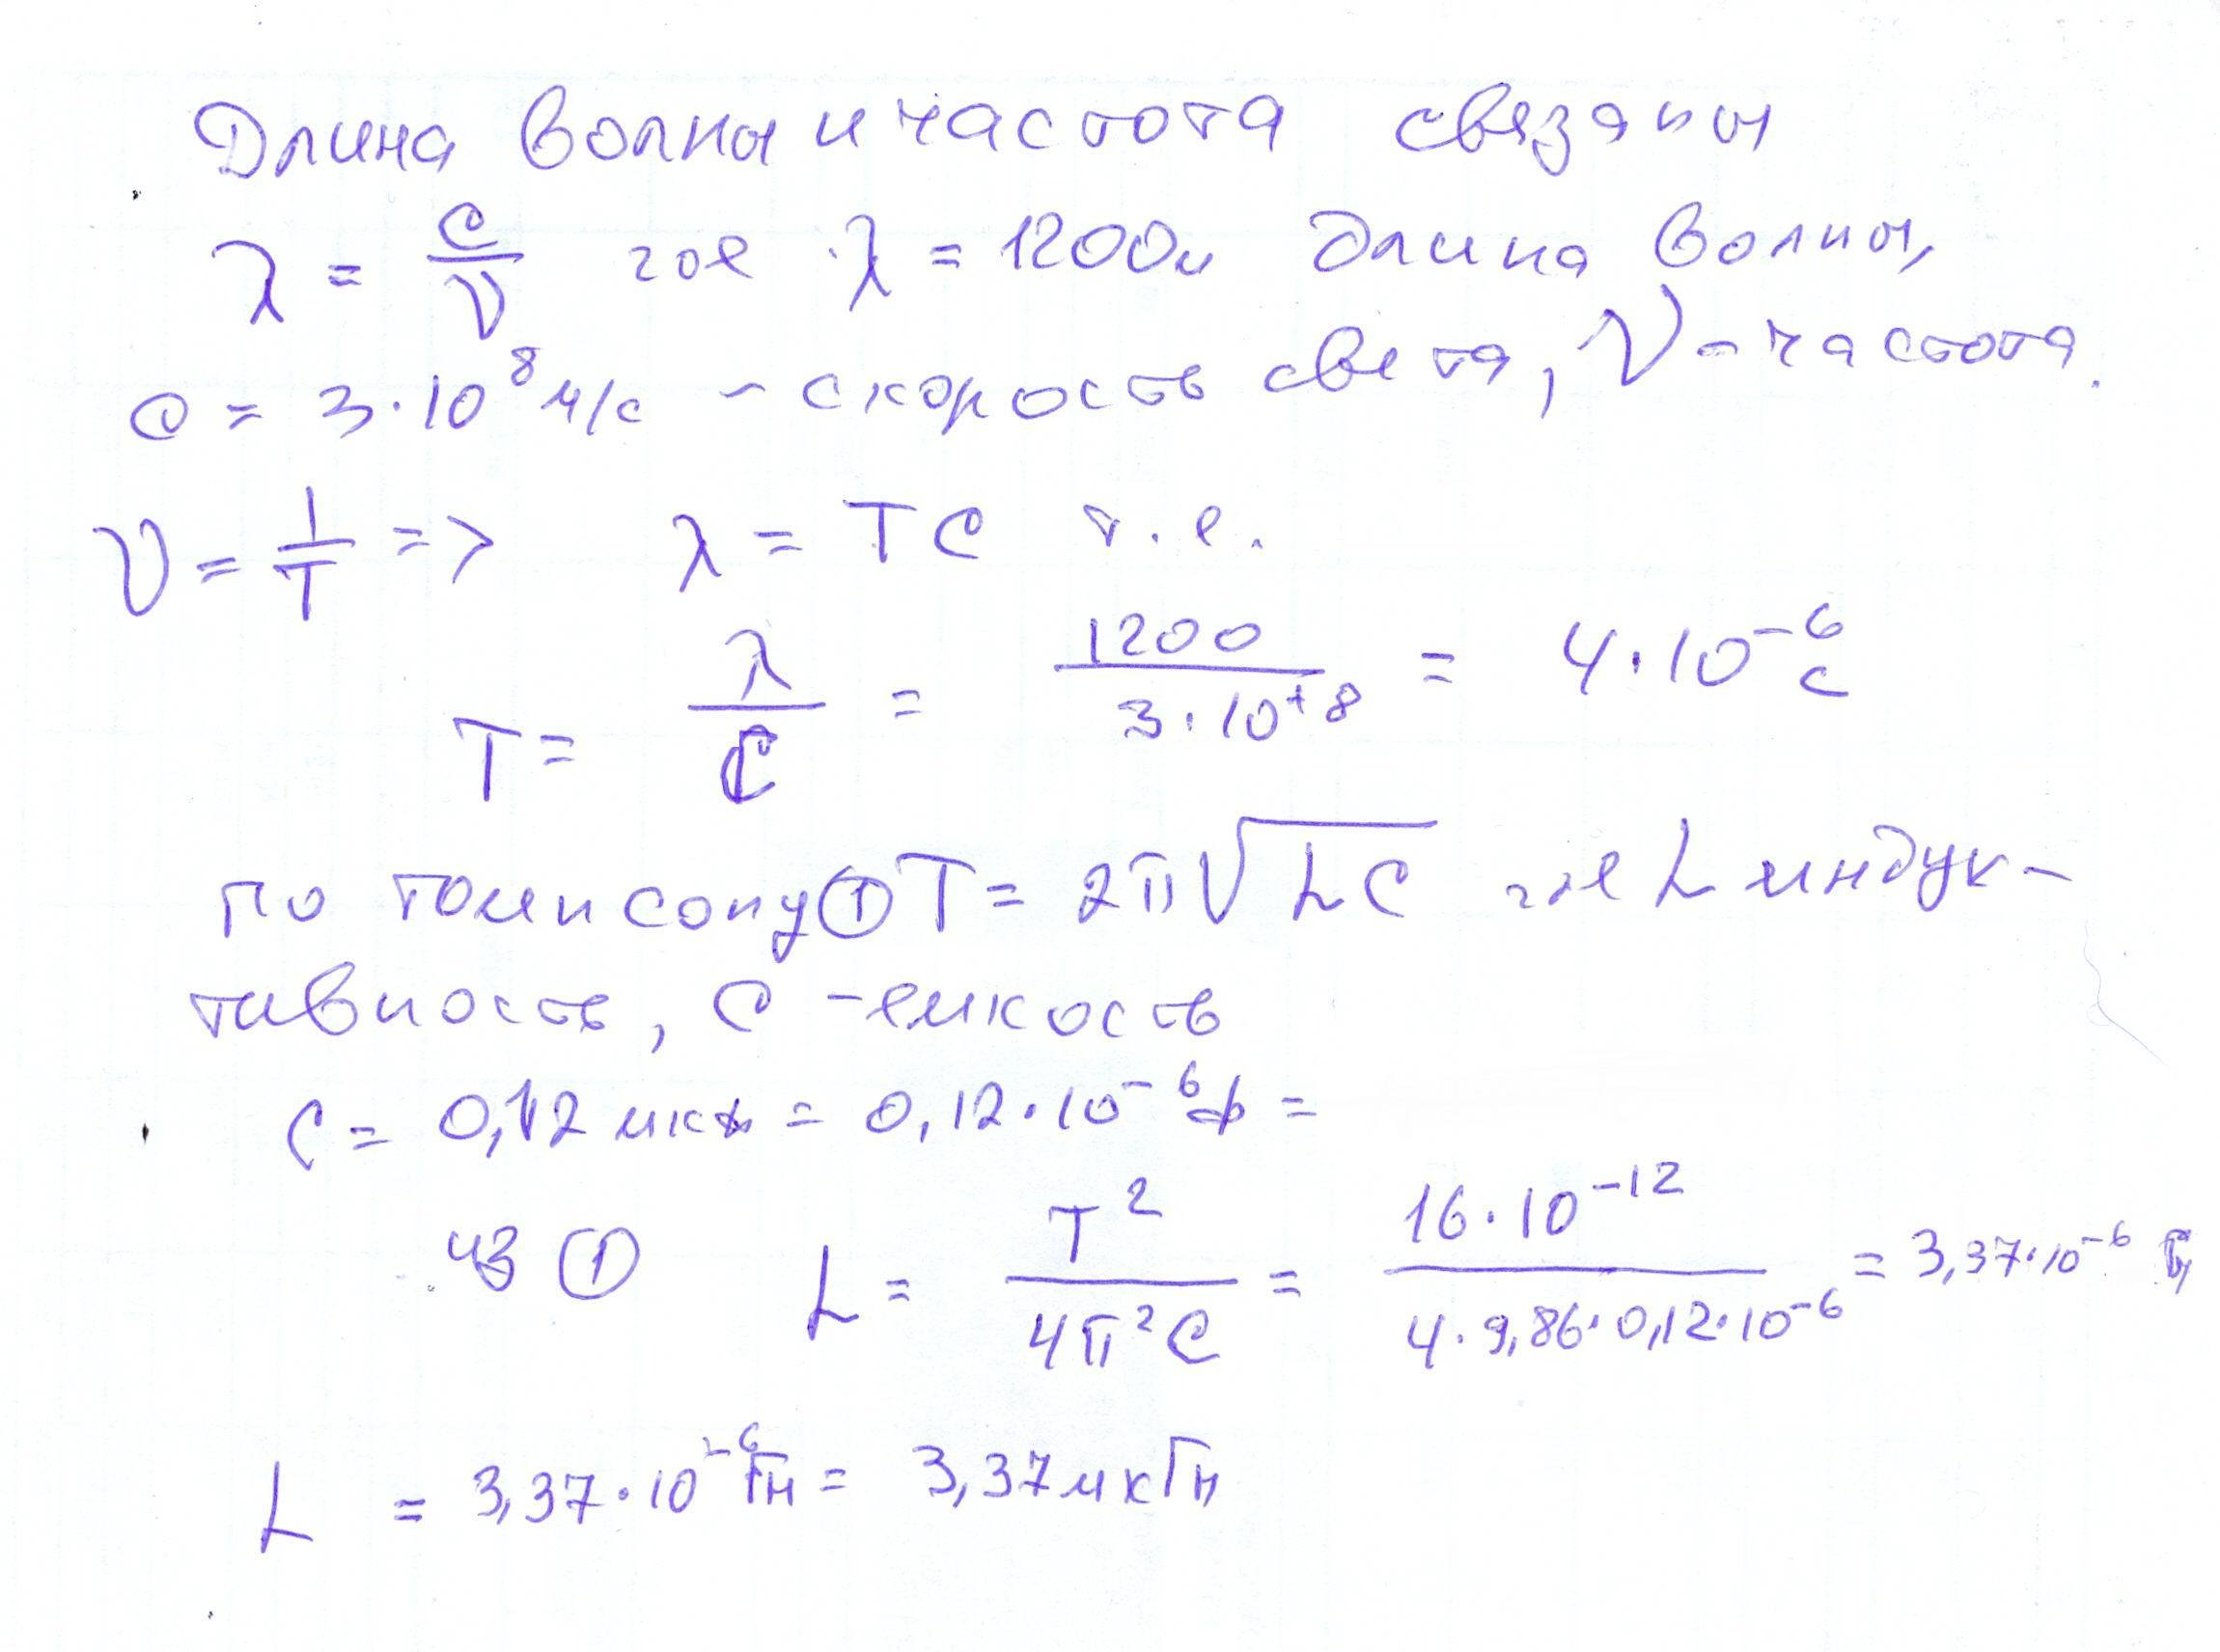 Длина волны и частота связаны
λ = c/ν где λ = 1200м длина волны,
c = 3·10⁸ м/с - скорость света, ν - частота.
ν = 1/T => λ = TC т.е.
T = λ/C = 1200/(3·10⁺⁸) = 4·10⁻⁶ с
по томпсону ① T = 2π√LC где L индук-
тивность, C - емкость
C = 0,12 мкф = 0,12·10⁻⁶ ф =
из ① L = T²/(4π²C) = 16·10⁻¹²/(4·9,86·0,12·10⁻⁶) = 3,37·10⁻⁶ Гн
L = 3,37·10⁻⁶ Гн = 3,37 мкГн